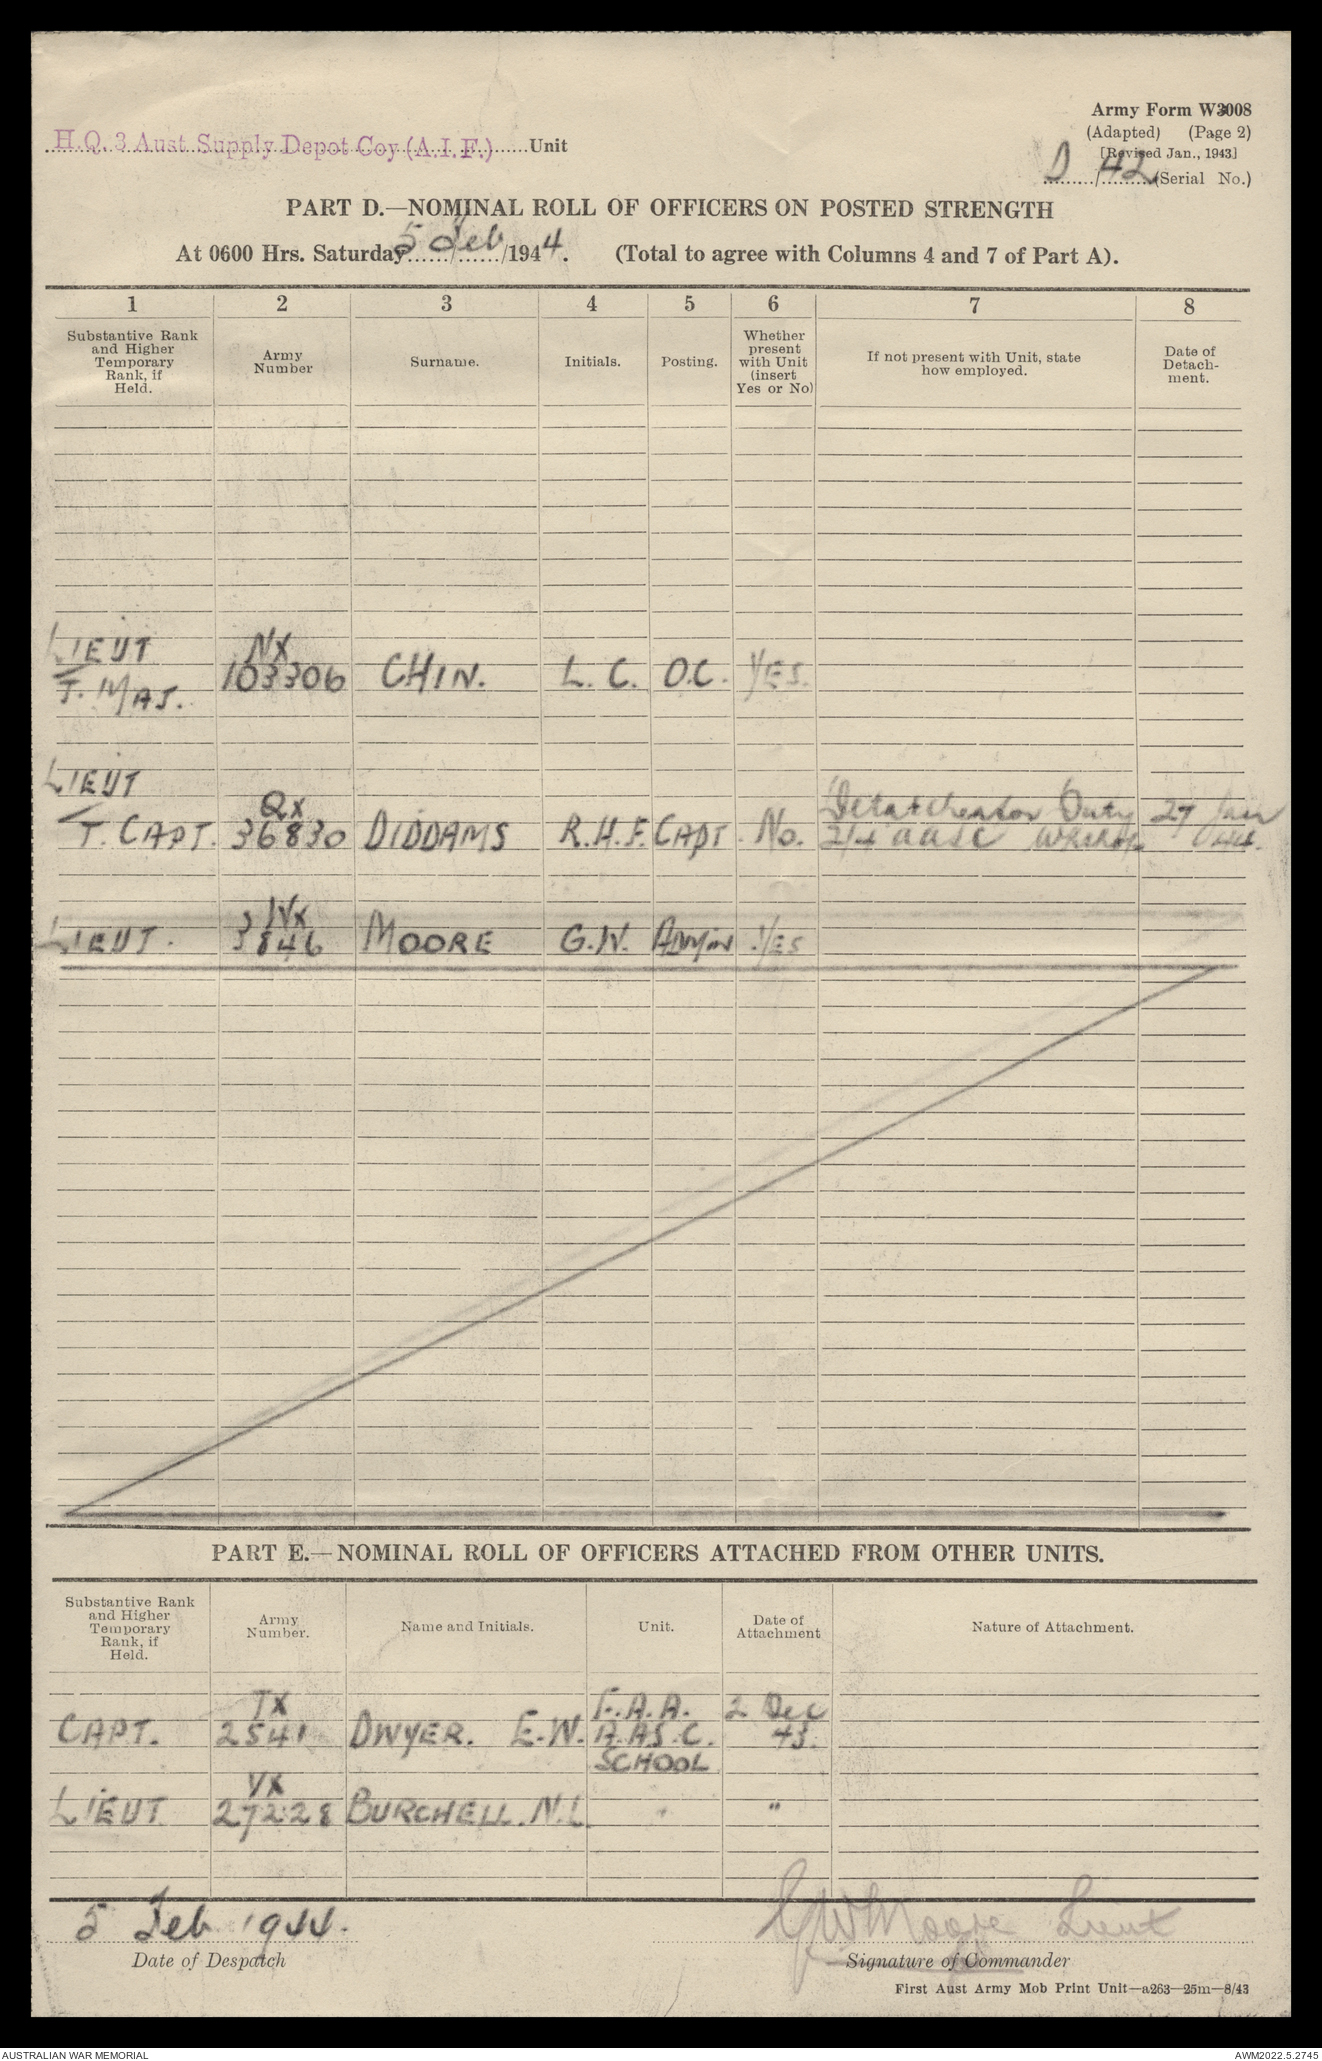 H.Q. 3 Aust Supply Depot Coy (A.I.F.) Unit
Army Form W3008
(Adapted) (Page 2)
[Revised Jan., 1943]
D / 42 (Serial No.)
PART D.—NOMINAL ROLL OF OFFICERS ON POSTED STRENGTH
At 0600 Hrs. Saturday 5 / Feb /1944. (Total to agree with Columns 4 and 7 of Part A).
1 2 3 4 5 6 7 8
Substantive Rank and Higher Temporary Rank, if Held.
Army Number
Surname.
Initials.
Posting.
Whether present with Unit (insert Yes or No)
If not present with Unit, state how employed.
Date of Detach- ment.
LIEUT NX
T. MAJ. 103306 CHIN. L. C. O.C. YES.
LIEUT
QX Duty 27 Jan
T. CAPT. 36830 DIDDAMS R.H.F. CAPT. No. 2/4 AASC Wkshop 44.
LIEUT. 3846 MOORE G.W. ADMIN YES
PART E.—NOMINAL ROLL OF OFFICERS ATTACHED FROM OTHER UNITS.
Substantive Rank and Higher Temporary Rank, if Held.
Army Number.
Name and Initials.
Unit.
Date of Attachment
Nature of Attachment.
TX 2 Dec
CAPT. 2541 DWYER. E.W. A.A.S.C. 43.
SCHOOL
VX
LIEUT 27228 BURCHELL. N.L. "
5 Feb 1944.
Date of Despatch
GW Moore Lieut
Signature of Commander
First Aust Army Mob Print Unit—a263—25m—8/43
AUSTRALIAN WAR MEMORIAL
AWM2022.5.2745